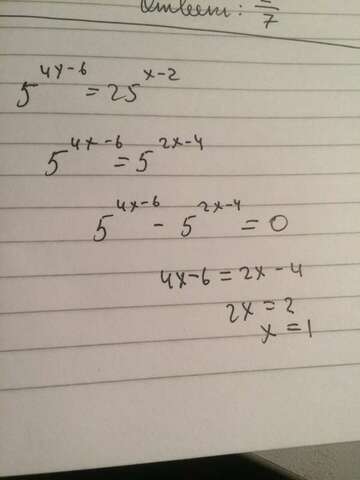 Ответ: /7
5^(4x-6) = 25^(x-2)
5^(4x-6) = 5^(2x-4)
5^(4x-6) - 5^(2x-4) = 0
4x-6 = 2x-4
2x = 2
x = 1